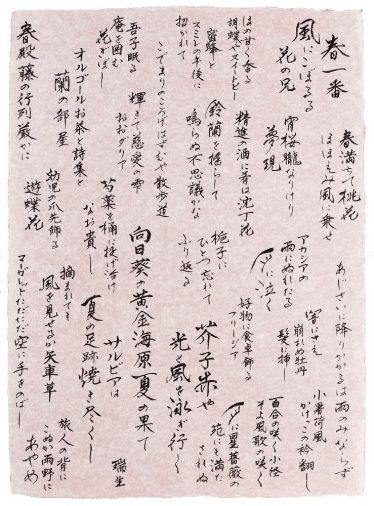 春一番
風にこぼるる
花の兄
ほの甘く香る
胡蝶やスイートピー
蜜蜂と
スミレの午後に
招かれて
こでまりのころげはずむや散歩道
吾子眠る
庵を囲む
花ぎぼし
オルゴールお茶と詩集と
蘭の部屋
春殿藤の行列厳かに
春満ちて桃花
ほほえみ風に乗せ
宵桜朧なりけり
夢現
精進の酒に肴は沈丁花
鈴蘭を揺らして
鳴らぬ不思議かな
輝きて慈愛の雫
おおダリア
芍薬を桶に投げ活け
なお貴し
幼児の爪先飾る
遊蝶花
あじさいに降りかかるは雨のみならず
アカシアの
雨にぬれたる
に泣く
梔子に
ひとつ忘れて
ふり返る
向日葵の黄金海原夏の果て
夏の足跡焼き尽くし
サルビアは
摘まれても
風を見せるか矢車草
マーガレットただただ空に手をのばし
崩れぬ牡丹
髪に挿し
好物に食卓飾る
フリージア
芥子赤や
光と風を泳ぎ行く
小暑荷風
かけこの衿翻し
百合の咲く小径
そよ風歌の咲く
に星薔薇の
苑にを満た
されぬ
端坐
旅人の背に
こぬか雨野に
あやめ